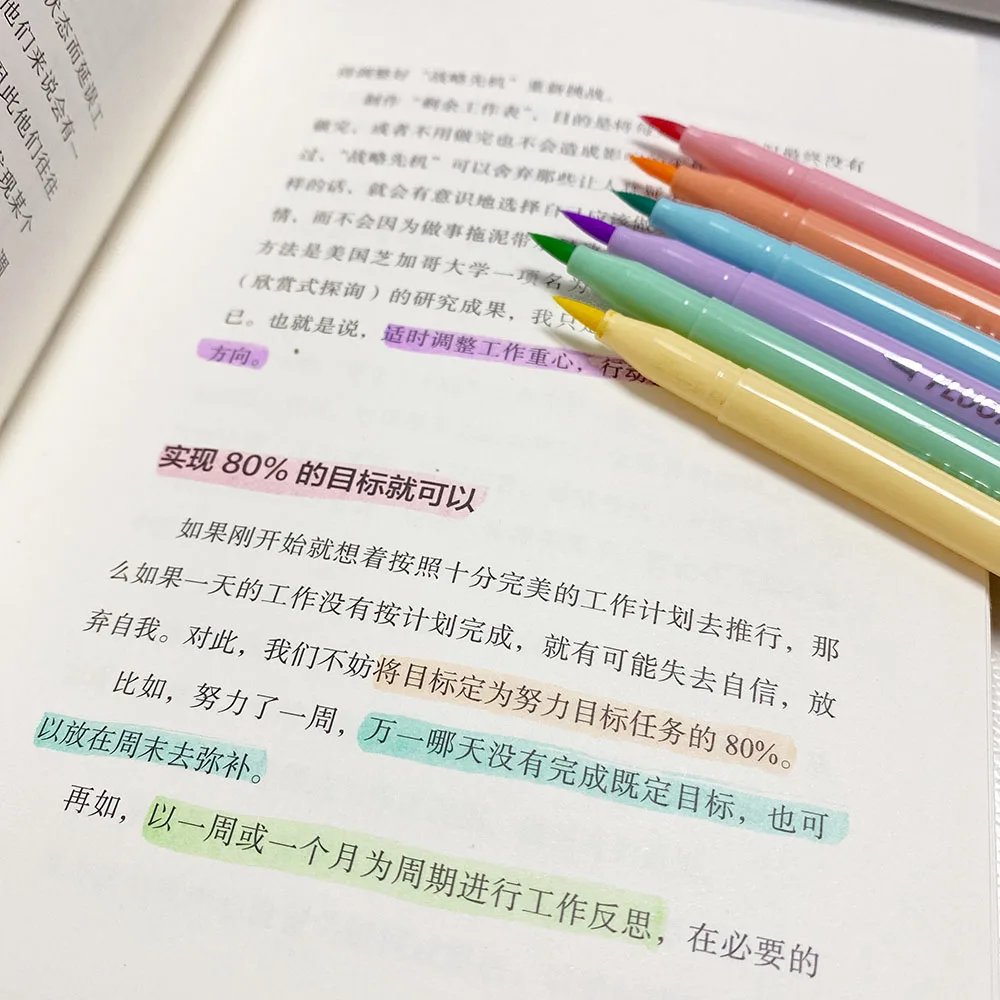 状态而延误工
他们来说会有一
因此他们往往
发现某个
调
得调整好“战略先机”重新挑战。
制作“剩余工作表”，目的是将每
做完，或者不用做完也不会造成影
过，“战略先机”可以舍弃那些让人
样的话，就会有意识地选择自己应该做
情，而不会因为做事拖泥带
方法是美国芝加哥大学一项名为
（欣赏式探询）的研究成果，我只是
已。也就是说，适时调整工作重心，行动
方向。
实现 80% 的目标就可以
如果刚开始就想着按照十分完美的工作计划去推行，那
么如果一天的工作没有按计划完成，就有可能失去自信，放
弃自我。对此，我们不妨将目标定为努力目标任务的 80%。
比如，努力了一周，万一哪天没有完成既定目标，也可
以放在周末去弥补。
再如，以一周或一个月为周期进行工作反思，在必要的